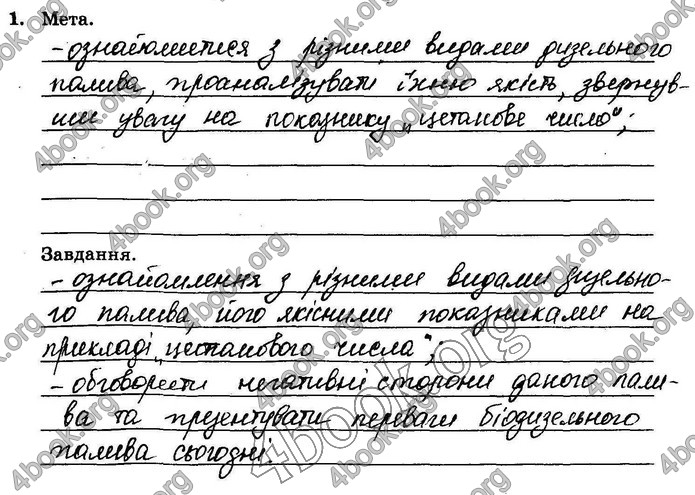 1. Мета.
- ознайомитися з різними видами дизельного
палива, проаналізувати їхню якість, звернув-
ши увагу на показнику „цетанове число";
Завдання.
- ознайомлення з різними видами дизельно-
го палива, його якісними показниками на
прикладі „цетанового числа";
- обговорити негативні сторони даного пали-
ва та презентувати переваги біодизельного
палива сьогодні.
4book.org